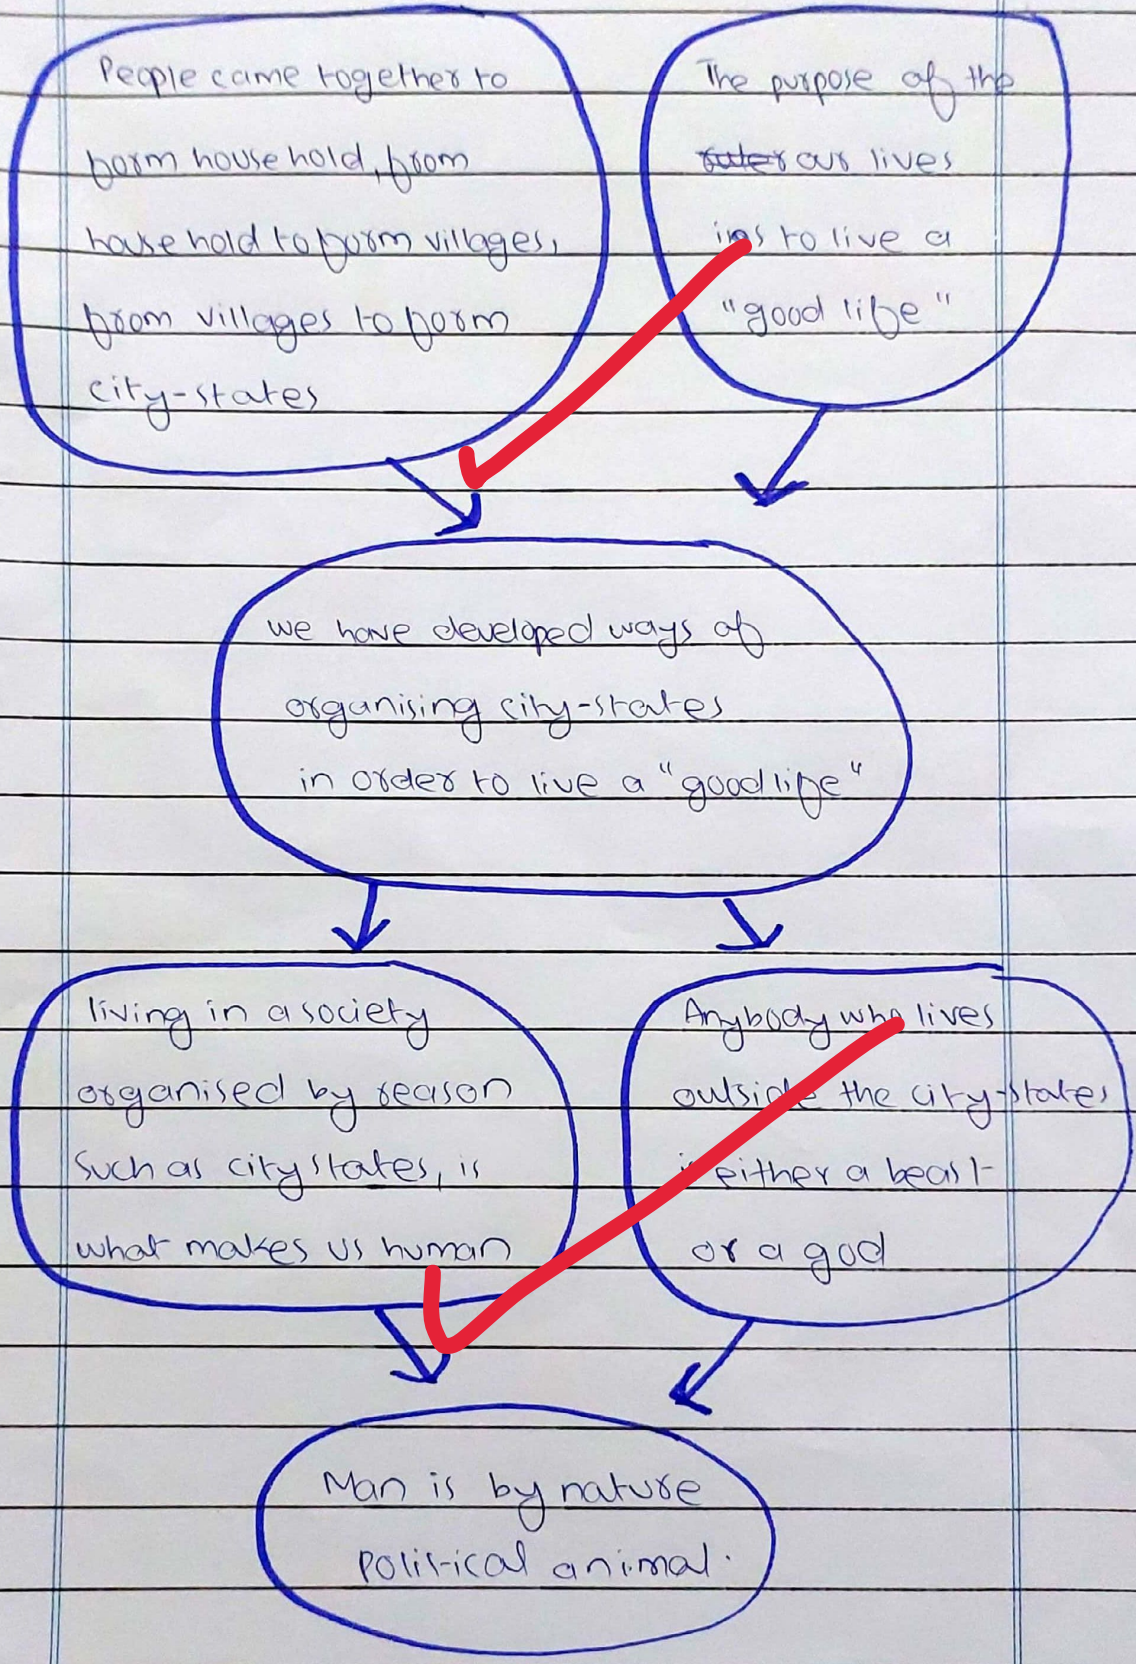 People came together to
form household, from
household to form villages,
from villages to form
city-states
The purpose of the
our lives
is to live a
"good life"
we have developed ways of
organising city-states
in order to live a "good life"
living in a society
organised by reason
such as city states, is
what makes us human
Anybody who lives
outside the city-states
is either a beast
or a god
Man is by nature
political animal.